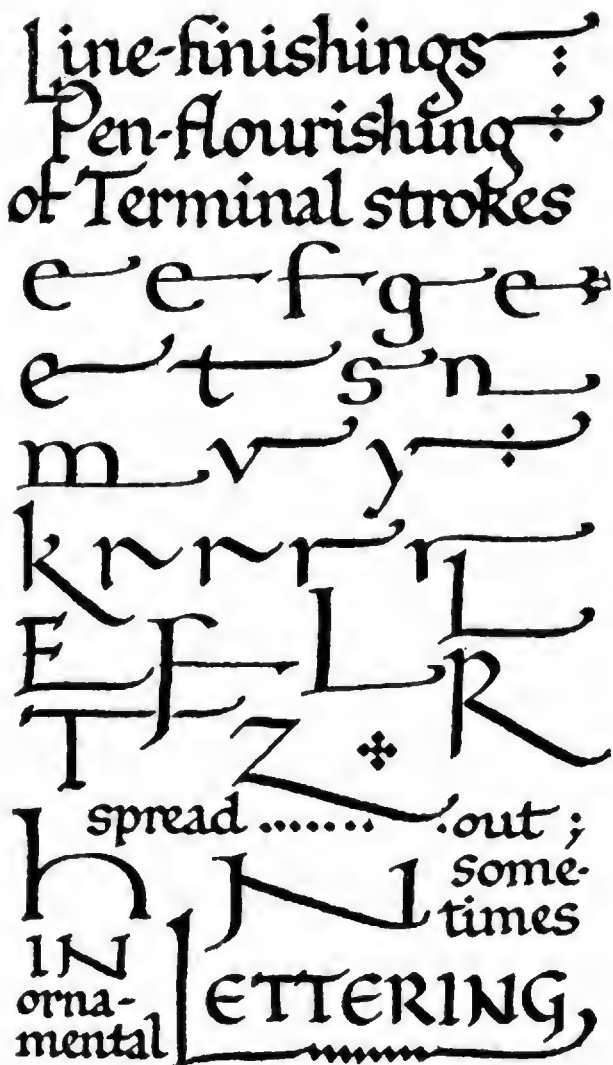 Line-finishings :
Pen-flourishing
of Terminal strokes
e e f g e
e t s n
m v y
k r r r r
E F L L
T Z R
spread ....... . out ;
h N some-
times
IN
orna-
mental LETTERING,